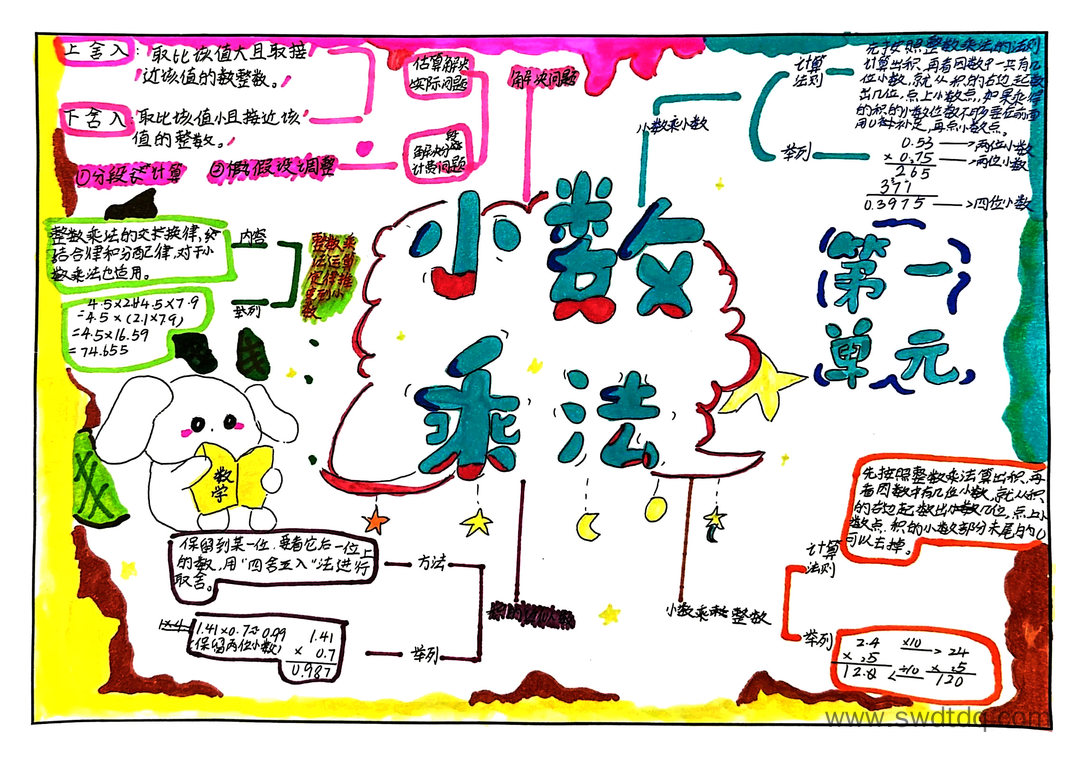 小数
乘法
第一
单元
上舍入:取比该值大且取接
近该值的数整数。
下舍入:取比该值小且接近该
值的整数。
估算解决
实际问题
解决分段
计费问题
解决问题
①分段计算
②假设调整
整数乘法的交换律,
结合律和分配律,对于小
数乘法也适用。
内容
举列
=4.5×(2.1×7.9)
=4.5×16.59
=74.655
数学
小数乘小数
计算
法则
先按照整数乘法的法则
计算出积,再看因数中一共有几
位小数,就从积的右边起数
出几位,点上小数点,如果乘得
的积的小数位数不够要在前面
用0补足,再点小数点。
举列
0.53 →两位小数
× 0.75 →两位小数
265
371
0.3975 →四位小数
保留到某一位,要看它后一位上
的数,用"四舍五入"法进行
取舍。
方法
1.41×0.7≈0.99
(保留两位小数)
1.41
× 0.7
0.987
举列
小数乘整数
计算
法则
先按照整数乘法算出积,再
看因数中有几位小数,就从积
的右边起数出几位,点上小
数点,积的小数部分末尾的0
可以去掉。
举列
2.4 ×10 → 24
× .5 × .5
12.0 ← ÷10 120
www.swdtdq.com